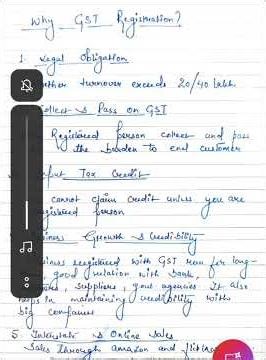 Why GST Registration?
1. Legal Obligation
turnover exceeds 20/40 lakh
& Pass on GST
Registered Person collect and pass
the burden to end customer
Tax Credit
cannot claim credit unless you are
person
Growth & Credibility
registered with GST run for long-
good relation with bank,
suppliers, govt agencies. It also
in maintaining credibility with
big companies
5. Interstate & Online Sales
Sales through amazon and